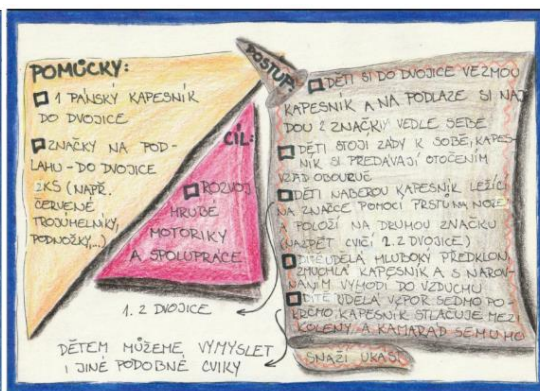 POMŮCKY:
1 PÁNSKÝ KAPESNÍK
DO DVOJICE
ZNAČKY NA POD-
LAHU - DO DVOJICE
2KS (NAPŘ.
ČERVENÉ
TROJÚHELNÍKY,
PODNOŽKY,...)
CÍL:
ROZVOJ
HRUBÉ
MOTORIKY
A SPOLUPRÁCE
POSTUP:
DĚTI SI DO DVOJICE VEZMOU
KAPESNÍK A NA PODLAZE SI NAJ
DOU 2 ZNAČKY VEDLE SEBE
DĚTI STOJÍ ZÁDY K SOBĚ, KAPES-
NÍK SI PŘEDÁVAJÍ OTOČENÍM
VZAD OBOURUČ
DĚTI NABEROU KAPESNÍK LEŽÍCÍ
NA ZNAČCE POMOCÍ PRSTŮ NA NOZE
A POLOŽÍ NA DRUHOU ZNAČKU
(NAZPĚT CVIČÍ 2. Z DVOJICE)
DÍTĚ UDĚLÁ HLUBOKÝ PŘEDKLON,
ZMUCHLÁ KAPESNÍK A S NAROV-
NÁNÍM VYHODÍ DO VZDUCHU
DÍTĚ UDĚLÁ VZPOR SEDMO PO-
KRČMO, KAPESNÍK STLAČUJE MEZI
KOLENY A KAMARÁD SE MU HO
SNAŽÍ UKÁST
1. Z DVOJICE
DĚTEM MŮŽEME VYMYSLET
I JINÉ PODOBNÉ CVIKY